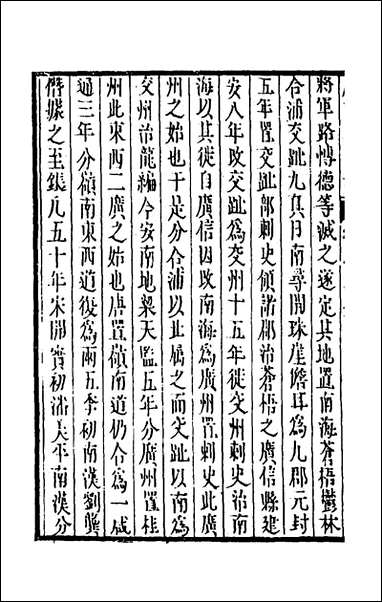 將軍路愽德等滅之遂定其地置南海蒼梧鬱林
合浦交趾九真日南尋開珠崖儋耳為九郡元封
五年置交趾部刺史領諸郡治蒼梧之廣信縣建
安八年攺交趾為交州十五年徙交州刺史治南
海以其徙自廣信因攺南海為廣州置刺史此廣
州之始也于是分合浦以北屬之而交趾以南為
交州治龍編今安南地梁天監五年分廣州置桂
州此東西二廣之始也唐置嶺南道仍合為一咸
通三年分嶺南東西道復為兩五季初南漢劉龑
僭據之至鋹凡五十年宋開寳初潘美平南漢分